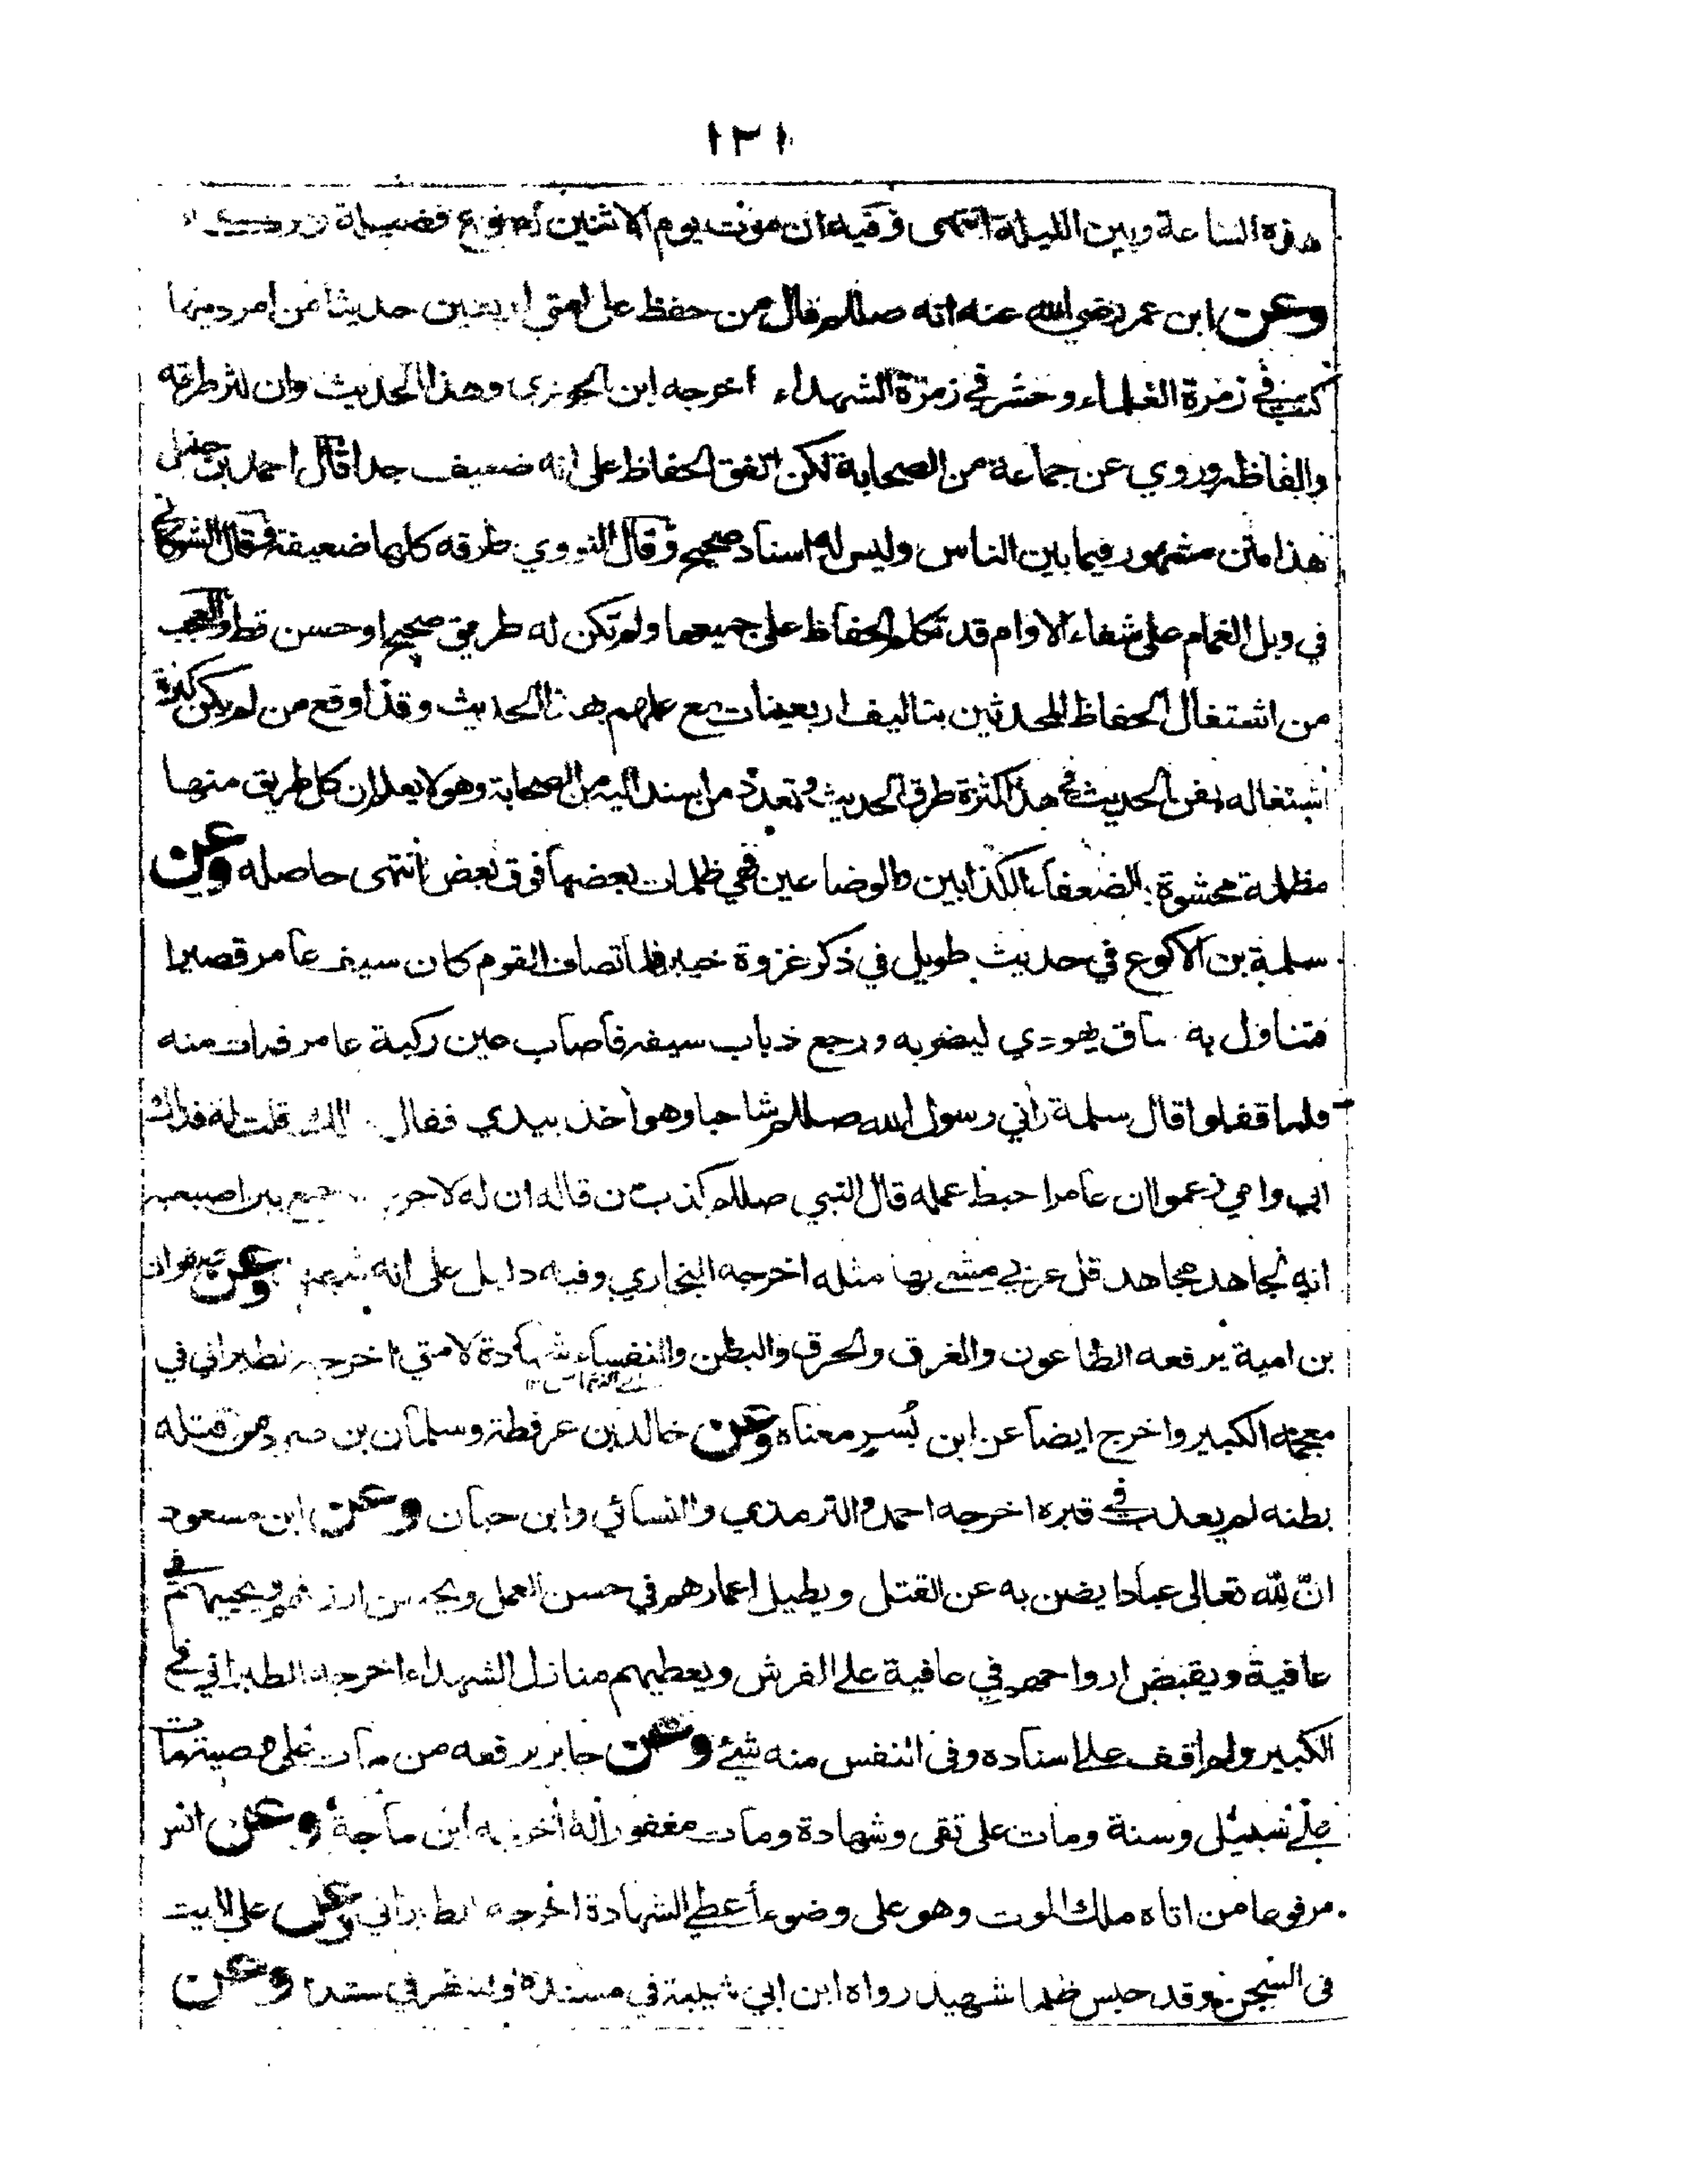 ١٢١
هذه الساعة وبين الليلة انتهى وفيه ان موت يوم الاثنين فضيلة
وعن ابن عمر رضي الله عنه انه صللم قال من حفظ على امتي اربعين حديثا من امر دينها
كتب في زمرة العلماء وحشر في زمرة الشهداء اخرجه ابن الجوزي وهذا الحديث وان كثر طرقه
والفاظه وروي عن جماعة من الصحابة لكن اتفق الحفاظ على انه ضعيف جدا قال احمد بن حنبل
هذا متن مشهور فيما بين الناس وليس له اسناد صحيح وقال النووي طرقه كلها ضعيفة وقال الشوكاني
في وبل الغمام على شفاء الاوام قد تكلم الحفاظ على جميعها ولم تكن له طريق صحيح او حسن قط والعجب
من اشتغال الحفاظ المحدثين بتاليف اربعينات مع علمهم بهذا الحديث وقد اوقع من لم يكن كثرة
اشتغاله بفن الحديث في هذا كثرة طرق الحديث وتعدد من اسند اليه من الصحابة وهو لا يعلم ان كل طريق منها
مظلمة محشوة بالضعفاء الكذابين والوضاعين فهي ظلمات بعضها فوق بعض انتهى حاصله وعن
سلمة بن الاكوع في حديث طويل في ذكر غزوة خيبر فلما تصاف القوم كان سيف عامر قصيرا
فتناول به ساق يهودي ليضربه ورجع ذباب سيفه فاصاب عين ركبة عامر فمات منه
فلما قفلوا قال سلمة رأني رسول الله صللم شاحبا وهو اخذ بيدي فقال مالك قلت له فداك
ابي وامي زعموا ان عامرا حبط عمله قال النبي صللم كذب من قاله ان له لاجرين وجمع بين اصبعيه
انه لجاهد مجاهد قل عربي مشى بها مثله اخرجه البخاري وفيه دليل على انه شهيد وعن صفوان
بن امية يرفعه الطاعون والغرق والحرق والبطن والنفساء شهادة لامتي اخرجه الطبراني في
اي النفاس ١٢
معجمه الكبير واخرج ايضا عن ابن بُسر معناه وعن خالد بن عرفطة وسلمان بن صرد من قتله
بطنه لم يعذب في قبره اخرجه احمد والترمذي والنسائي وابن حبان وعن ابن مسعود
انّ لله تعالى عبادا يضن به عن القتل ويطيل اعمارهم في حسن العمل ويحسن ارزاقهم ويحييهم في
عافية ويقبض ارواحهم في عافية على الفرش ويعطيهم منازل الشهداء اخرجه الطبراني في
الكبير ولم اقف على اسناده وفى النفس منه شيء وعن جابر يرفعه من مات على وصيته مات
على سبيل وسنة ومات على تقى وشهادة ومات مغفورا له اخرجه ابن ماجة وعن انس
مرفوعا من اتاه ملك الموت وهو على وضوء أعطي الشهادة اخرجه الطبراني وعن علي الميت
فى السجن وقد حبس ظلما شهيد رواه ابن ابي شيبة في مسنده ولينظر في سنده وعن